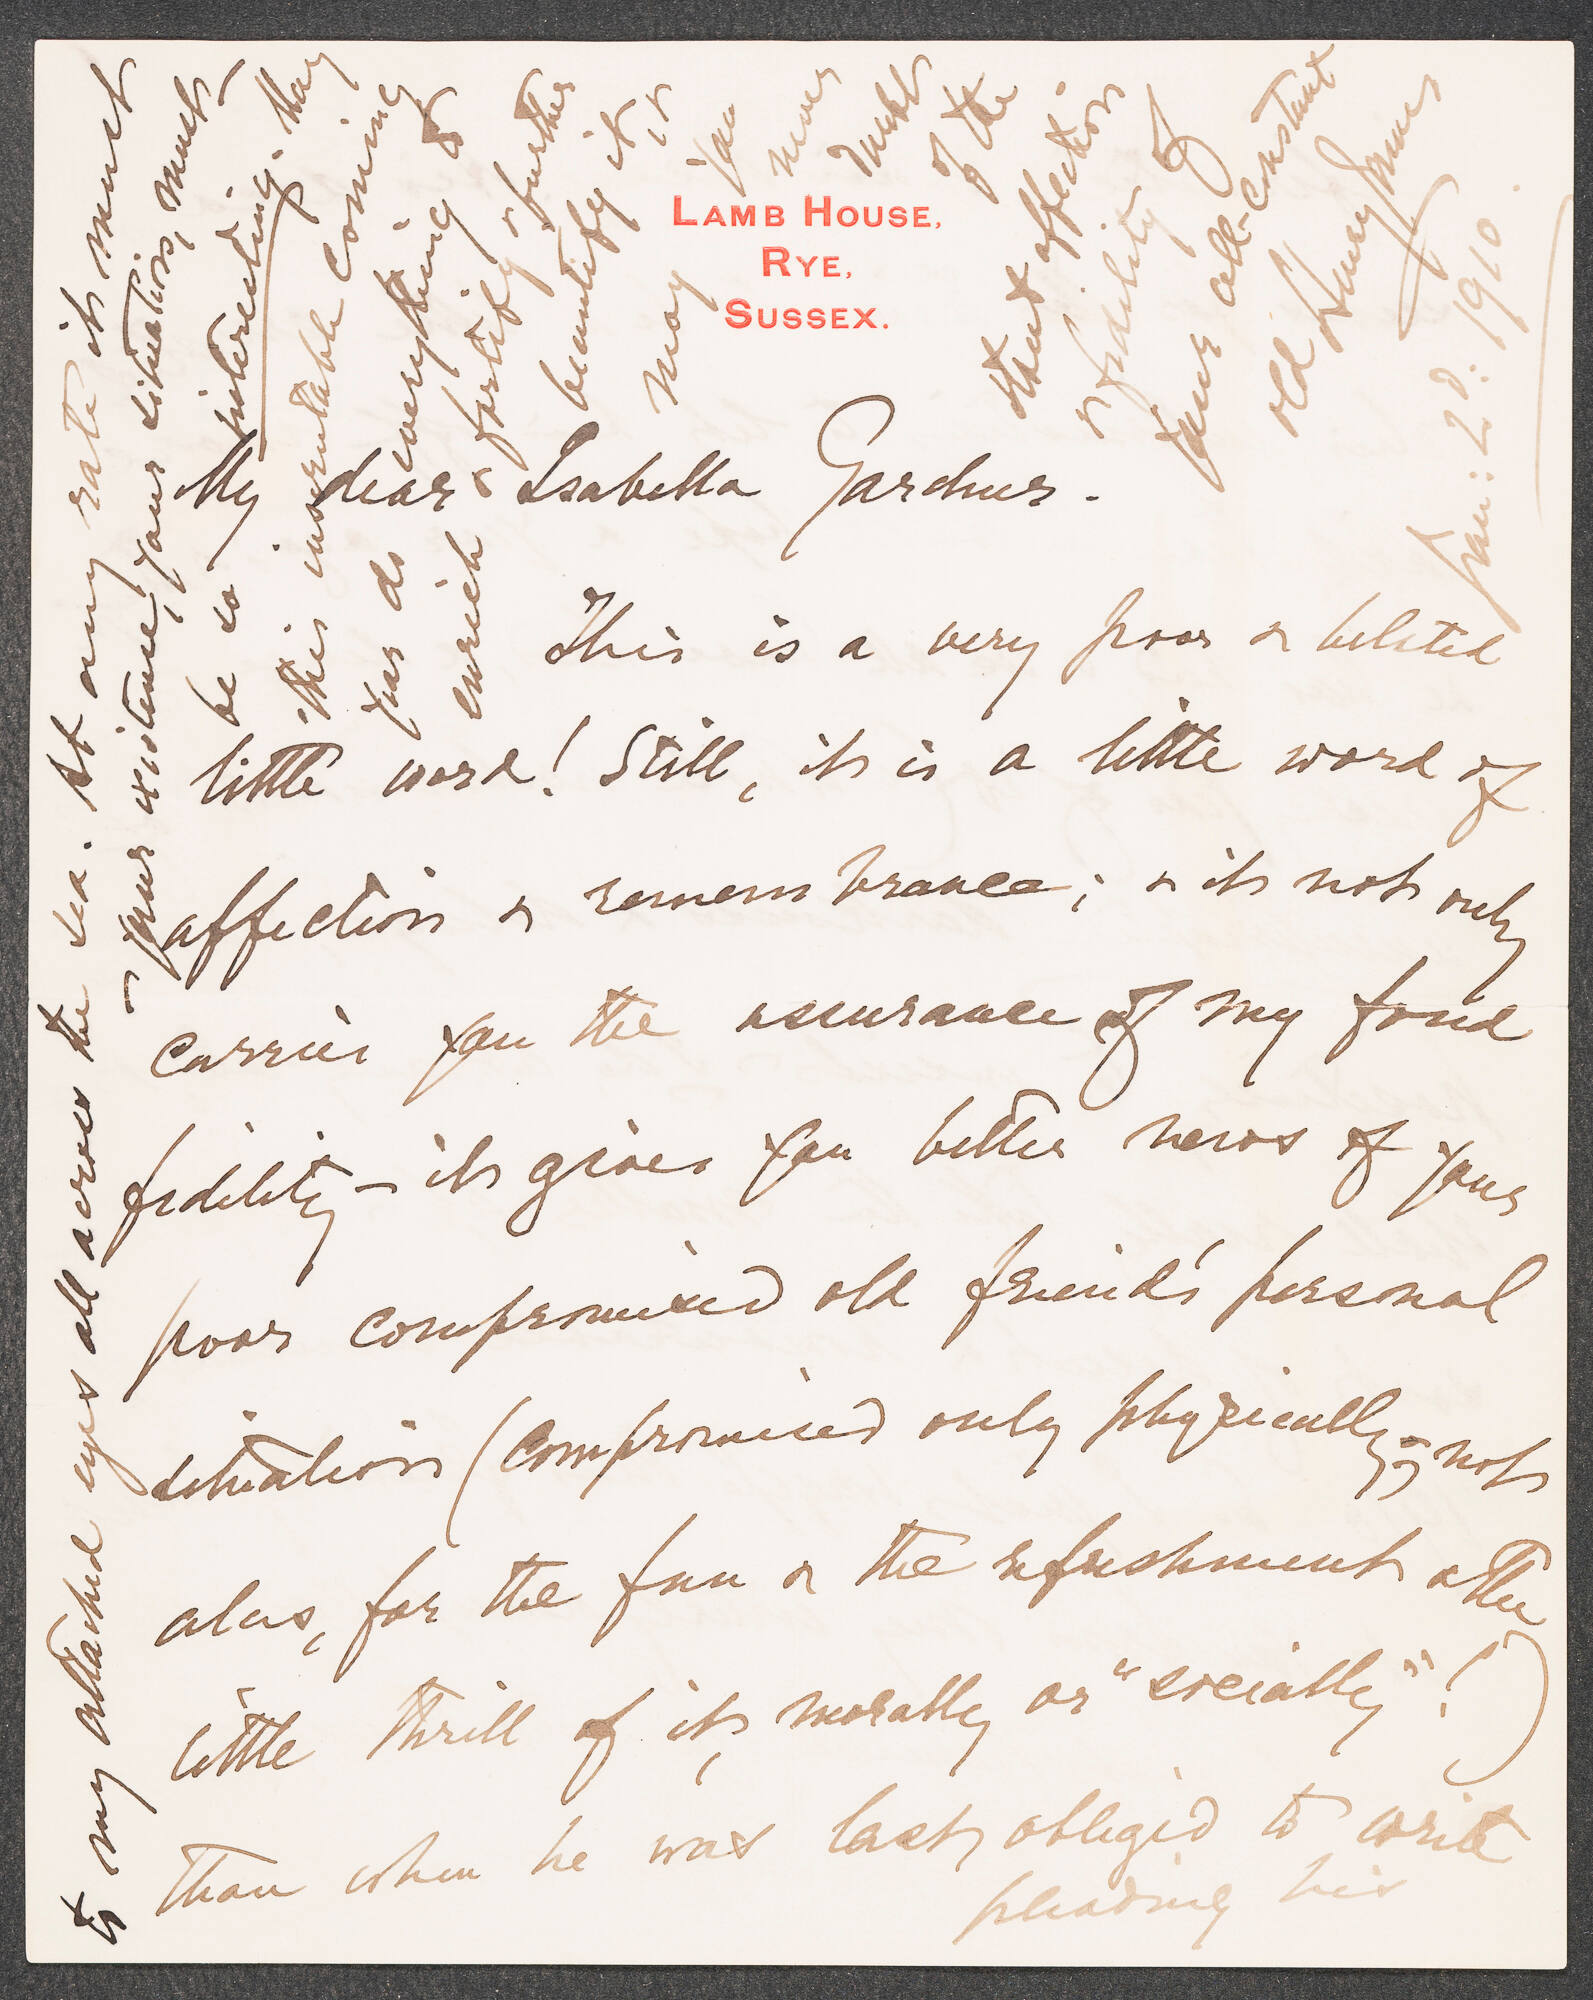 LAMB HOUSE,
RYE,
SUSSEX.
My dear Isabella Gardner.
This is a very poor & belated
little word! Still, it is a little word of
affection & remembrance; & it not only
carries you the assurance of my fond
fidelity – it gives you better news of your
poor compromised old friend's personal
situation (compromised only physically; – not
alas, for the fun & the refreshment & the
little thrill of it, morally or "socially"!)
than when he was last obliged to write
pleading his
to my attached eyes all across the sea. At any rate it must
– your existence, your situation, must –
be so interesting. May
this inscrutable coming
year do everything to
enrich & fortify & further
beautify it, &
may you
never
doubt
of the
stout affection
& fidelity of
your all-constant
old Henry James
Jan: 2d: 1910.